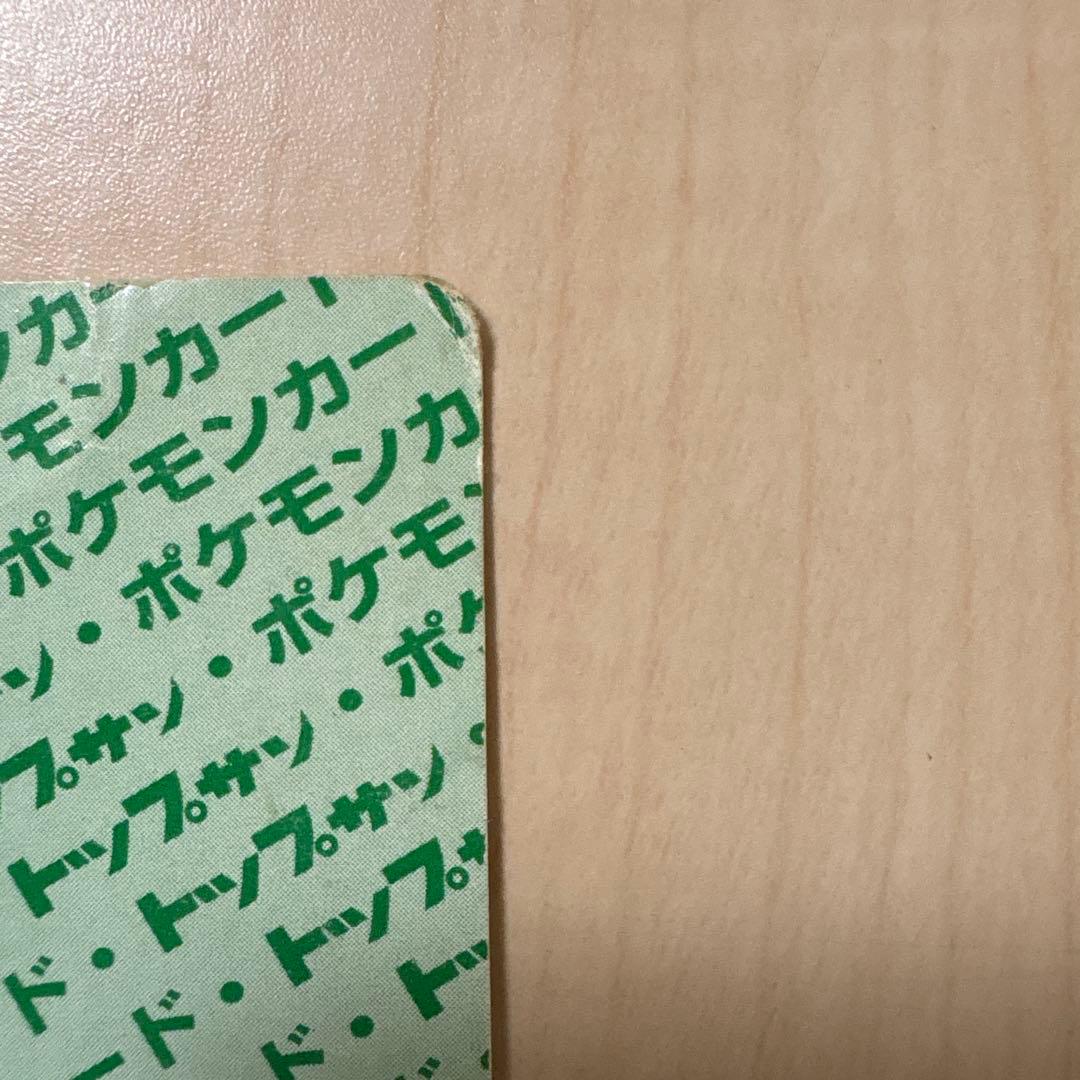 ンカー
モンカード
ポケモンカー
ン・ポケモンカ
ップサン・ポケモ
トップサン・ポケ
ド・トップサン・
ード・トップサ
ド・トッ